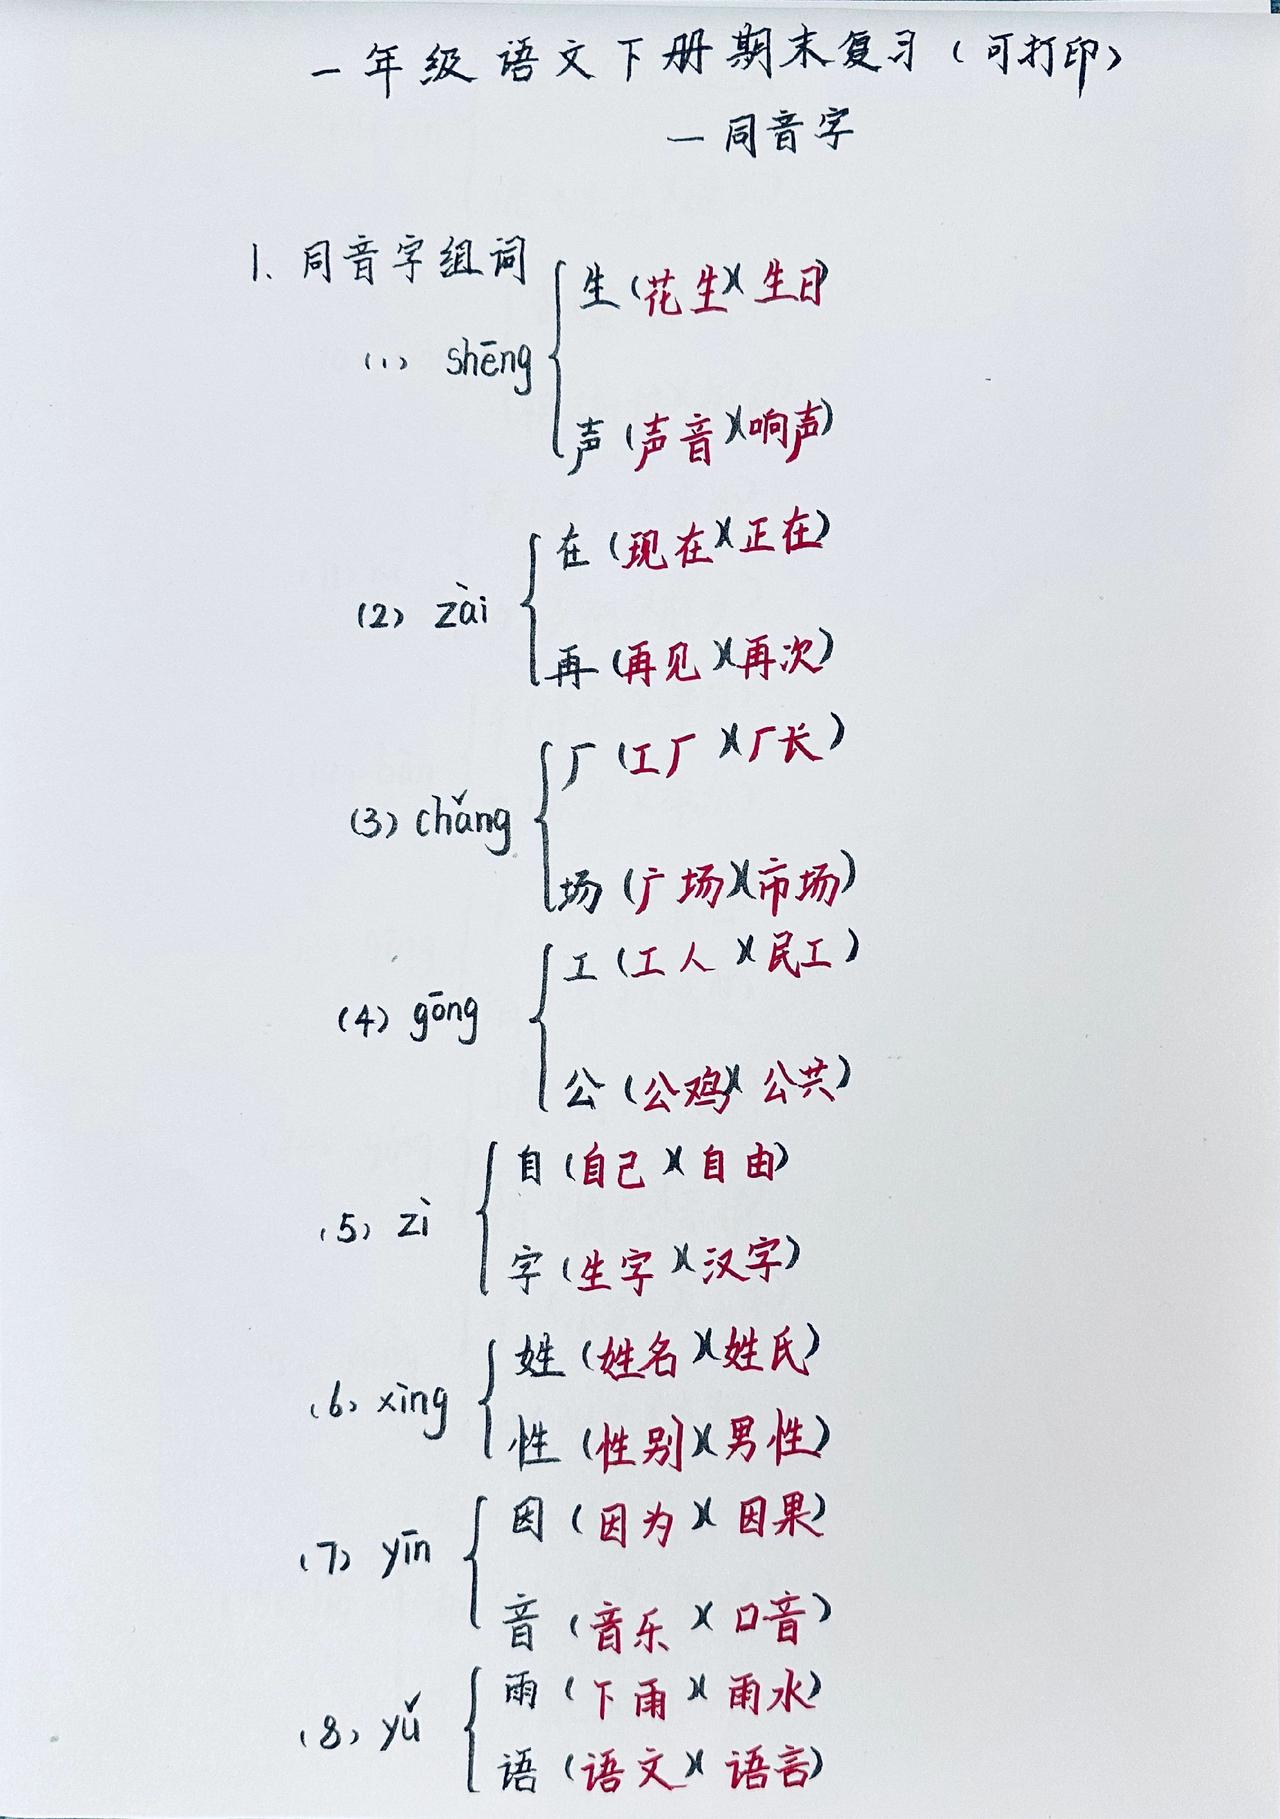 一年级语文下册期末复习(可打印)
一同音字
1.同音字组词
生(花生)(生日)
(1) shēng
声(声音)(响声)
在(现在)(正在)
(2) zài
再(再见)(再次)
厂(工厂)(厂长)
(3) chǎng
场(广场)(市场)
工(工人)(民工)
(4) gōng
公(公鸡)(公共)
自(自己)(自由)
(5) zì
字(生字)(汉字)
姓(姓名)(姓氏)
(6) xìng
性(性别)(男性)
因(因为)(因果)
(7) yīn
音(音乐)(口音)
雨(下雨)(雨水)
(8) yǔ
语(语文)(语言)